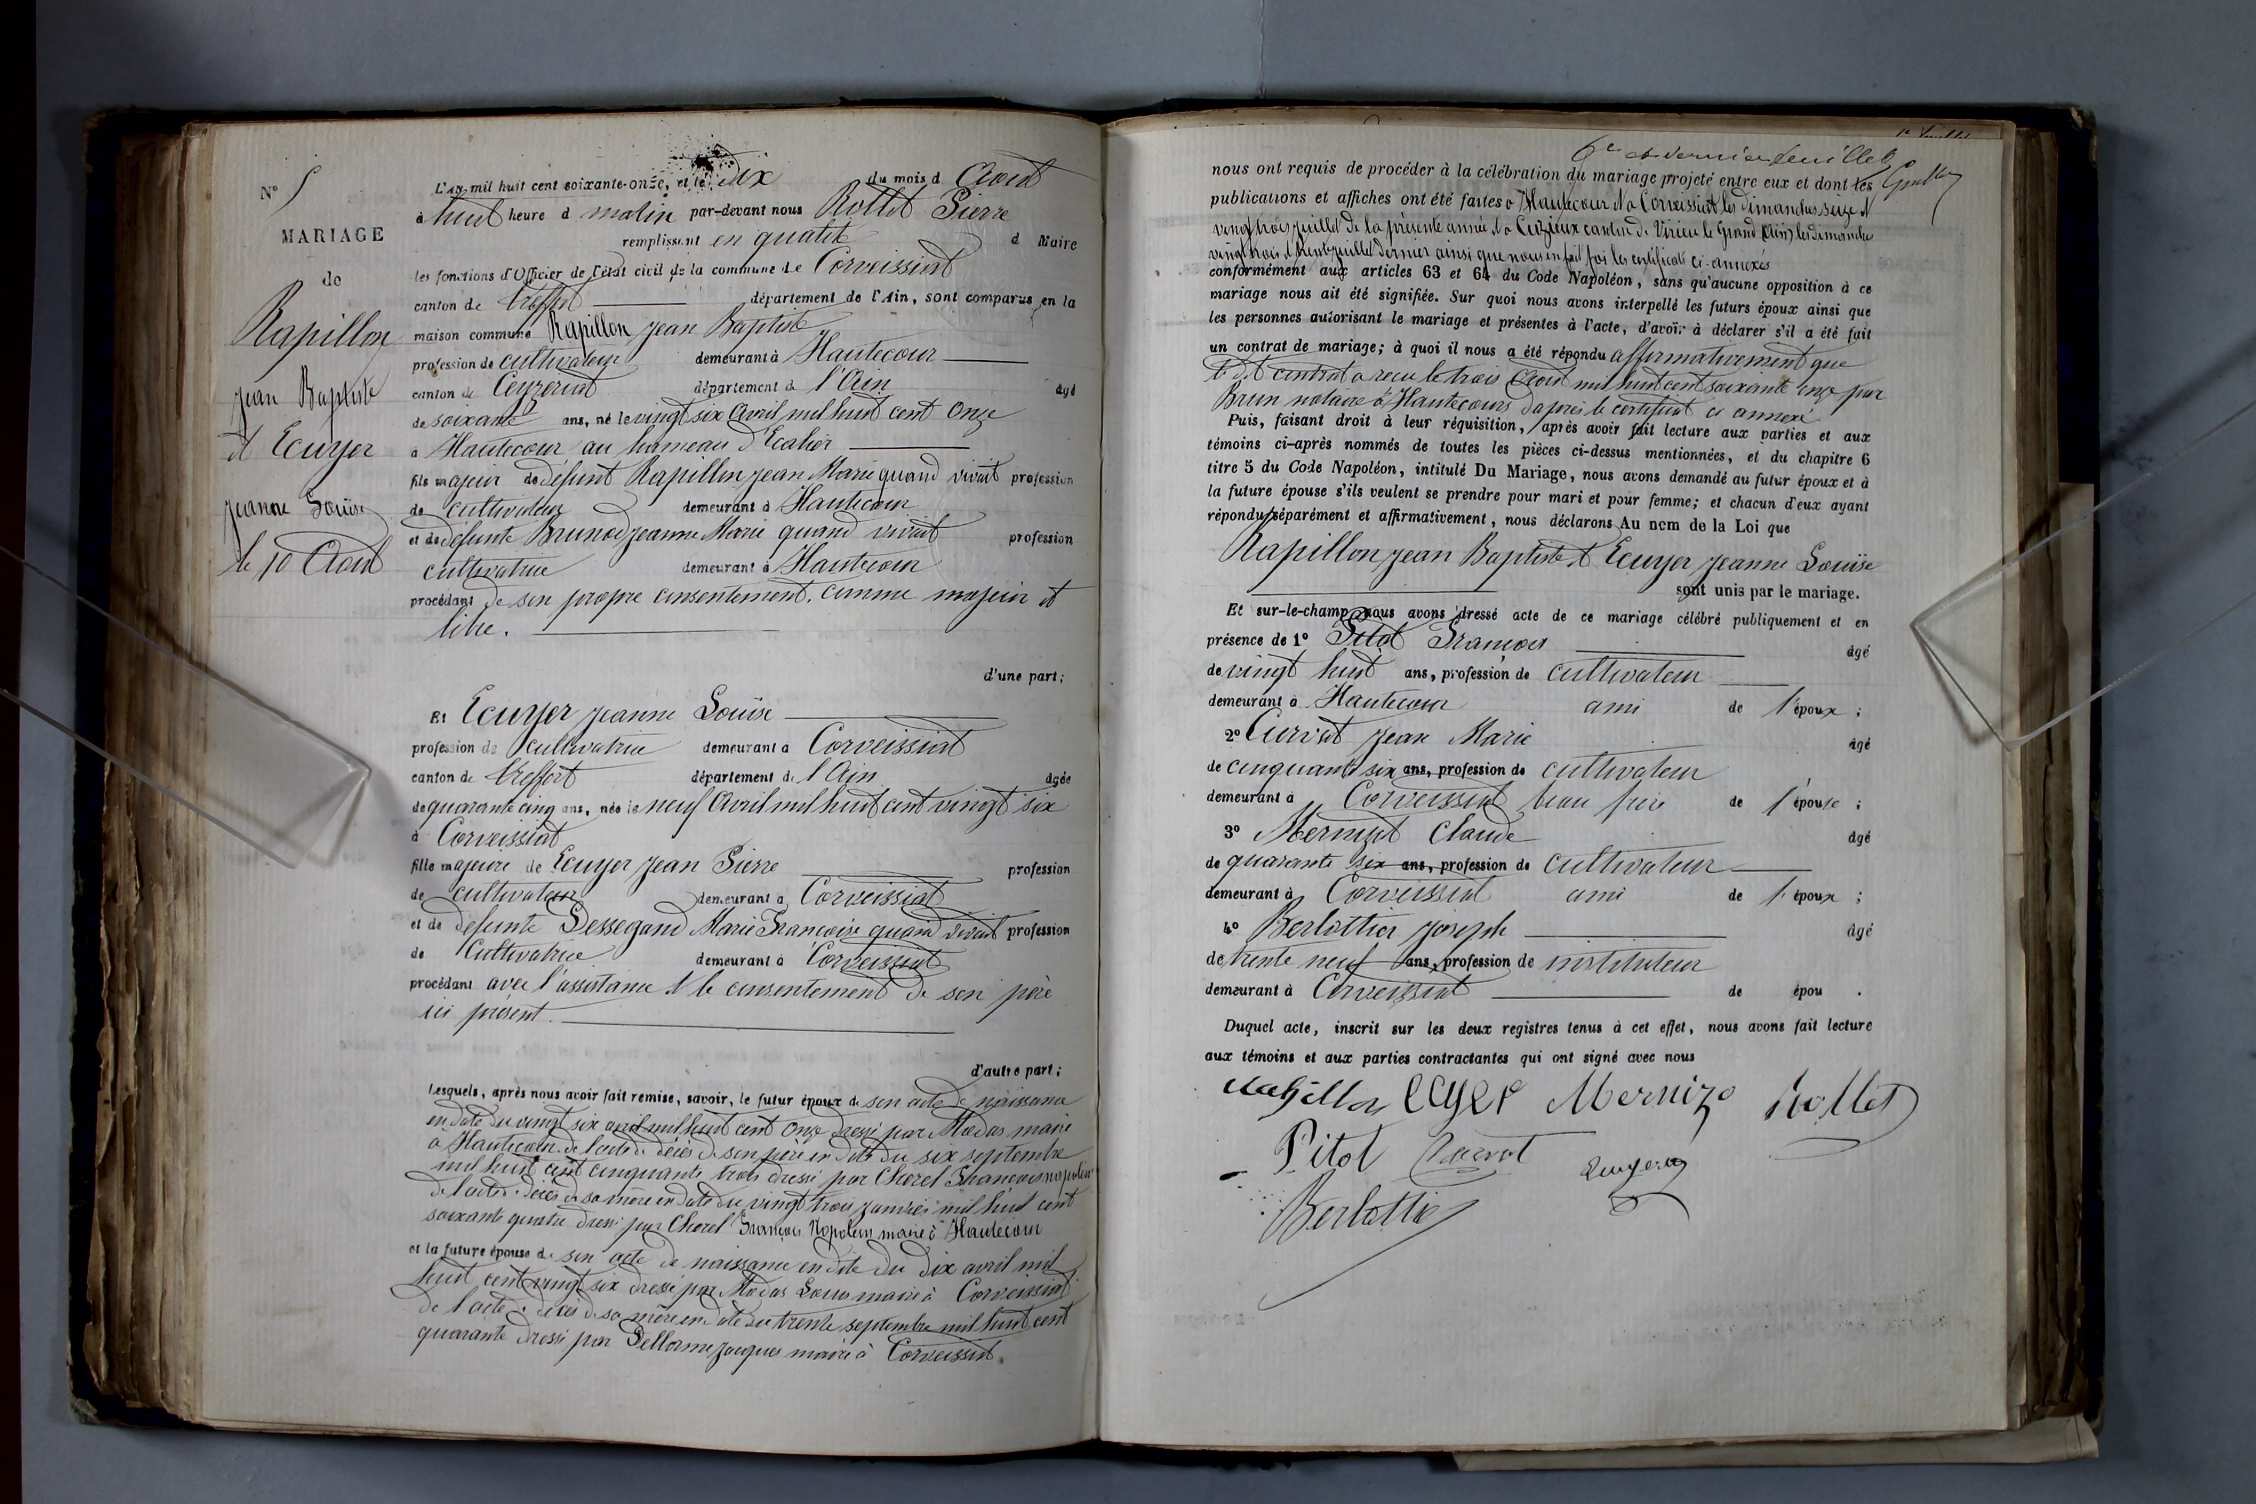 N° 5
MARIAGE
de
Rapillon
Jean Baptiste
et Ecuyer
Jeanne Louise
le 10 Août
L'an mil huit cent soixante-onze, et le dix du mois d Août
à huit heure d matin par-devant nous Rollet Pierre
remplissant en qualité d Maire
les fonctions d'Officier de l'état civil de la commune de Corveissiat
canton de Treffort département de l'Ain, sont comparus en la
maison commune Rapillon Jean Baptiste
profession de cultivateur demeurant à Hautecour
canton de Ceyzeriat département d l'Ain âgé
de soixante ans, né le vingt six Avril mil huit cent onze
à Hautecour au hameau d'
fils majeur de défunt Rapillon Jean Marie quand vivait profession
de cultivateur demeurant à Hautecour
et de défunte Brunod Jeanne Marie quand vivait profession
cultivatrice demeurant à Hautecour
procédant de son propre consentement, comme majeur et
libre.
d'une part;
Et Ecuyer Jeanne Louise
profession de cultivatrice demeurant à Corveissiat
canton de Treffort département de l'Ain âgée
de quarante cinq ans, née le neuf Avril mil huit cent vingt six
à Corveissiat
fille majeure de Ecuyer Jean Pierre profession
de cultivateur demeurant à Corveissiat
et de défunte Marie Françoise quand vivait profession
de cultivatrice demeurant à Corveissiat
procédant avec l'assistance et le consentement de son père
ici présent.
d'autre part;
Lesquels, après nous avoir fait remise, savoir, le futur époux de son acte de naissance
en date du vingt six avril mil huit cent onze dressé par Modas maire
à Hautecour de l'acte de décès de son père en date du six septembre
mil huit cent cinquante trois dressé par Chorel François napoléon
de l'acte de décès de sa mère en date du vingt trois janvier mil huit cent
soixante quatre dressé par Chorel François Napoléon maire à Hautecour
et la future épouse de son acte de naissance en date du dix avril mil
huit cent vingt six dressé par Modas Louis maire à Corveissiat
de l'acte de décès de sa mère en date du trente septembre mil huit cent
quarante dressé par Jacques maire à Corveissiat.
6e et dernier feuillet
nous ont requis de procéder à la célébration du mariage projeté entre eux et dont les
publications et affiches ont été faites à Hautecour et à Corveissiat les dimanches seize et
vingt trois juillet de la présente année, à Cuzieux canton de Virieu le Grand (Ain) les dimanches
vingt trois et trente juillet dernier ainsi que nous en fait foi les certificats ci-annexés
conformément aux articles 63 et 64 du Code Napoléon, sans qu'aucune opposition à ce
mariage nous ait été signifiée. Sur quoi nous avons interpellé les futurs époux ainsi que
les personnes autorisant le mariage et présentes à l'acte, d'avoir à déclarer s'il a été fait
un contrat de mariage; à quoi il nous a été répondu affirmativement que
le dit contrat a reçu le trois Août mil huit cent soixante onze par
Brun notaire à Hautecour d'après le certificat ci annexé
Puis, faisant droit à leur réquisition, après avoir fait lecture aux parties et aux
témoins ci-après nommés de toutes les pièces ci-dessus mentionnées, et du chapitre 6
titre 5 du Code Napoléon, intitulé Du Mariage, nous avons demandé au futur époux et à
la future épouse s'ils veulent se prendre pour mari et pour femme; et chacun d'eux ayant
répondu séparément et affirmativement, nous déclarons Au nom de la Loi que
Rapillon Jean Baptiste et Ecuyer Jeanne Louise
sont unis par le mariage.
Et sur-le-champ nous avons dressé acte de ce mariage célébré publiquement et en
présence de 1° Pitot François âgé
de vingt huit ans, profession de cultivateur
demeurant à Hautecour ami de l'époux;
2° Curvat Jean Marie âgé
de cinquante six ans, profession de cultivateur
demeurant à Corveissiat beau frère de l'épouse;
3° Mernizot Claude âgé
de quarante six ans, profession de cultivateur
demeurant à Corveissiat ami de l'époux;
4° Berlottier Joseph âgé
de trente neuf ans, profession de instituteur
demeurant à Corveissiat de épou .
Duquel acte, inscrit sur les deux registres tenus à cet effet, nous avons fait lecture
aux témoins et aux parties contractantes qui ont signé avec nous
Rapillon Mernizo Rollet
Pitot Curvat
Berlottier